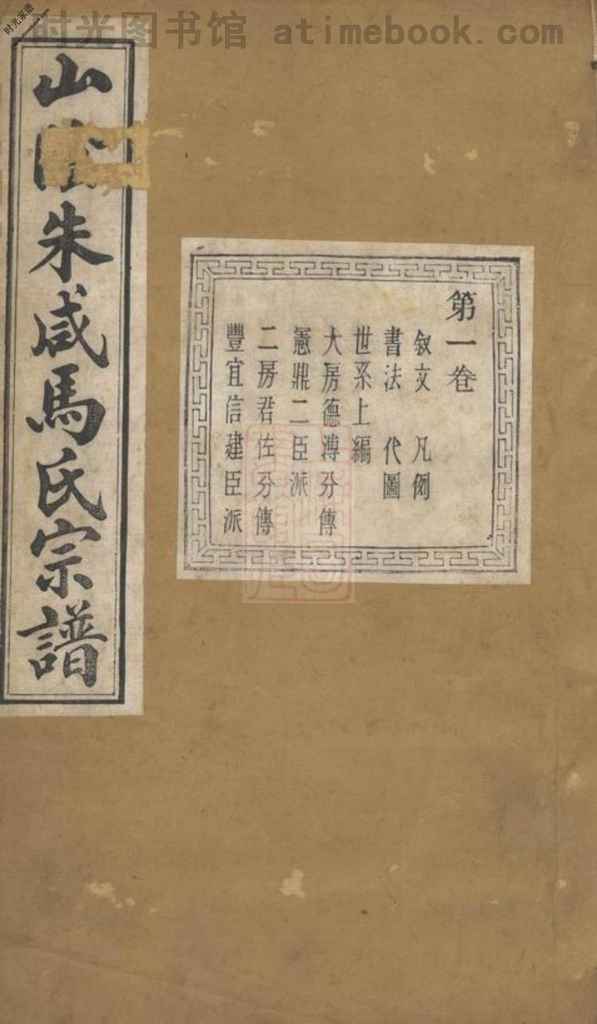 时光图书馆 atimebook.com
山陰朱咸馬氏宗譜
第一卷
叙文 凡例
書法 代圖
世系上編
大房德溥分傳
憲鼎二臣派
二房君佐分傳
豐宜信建臣派